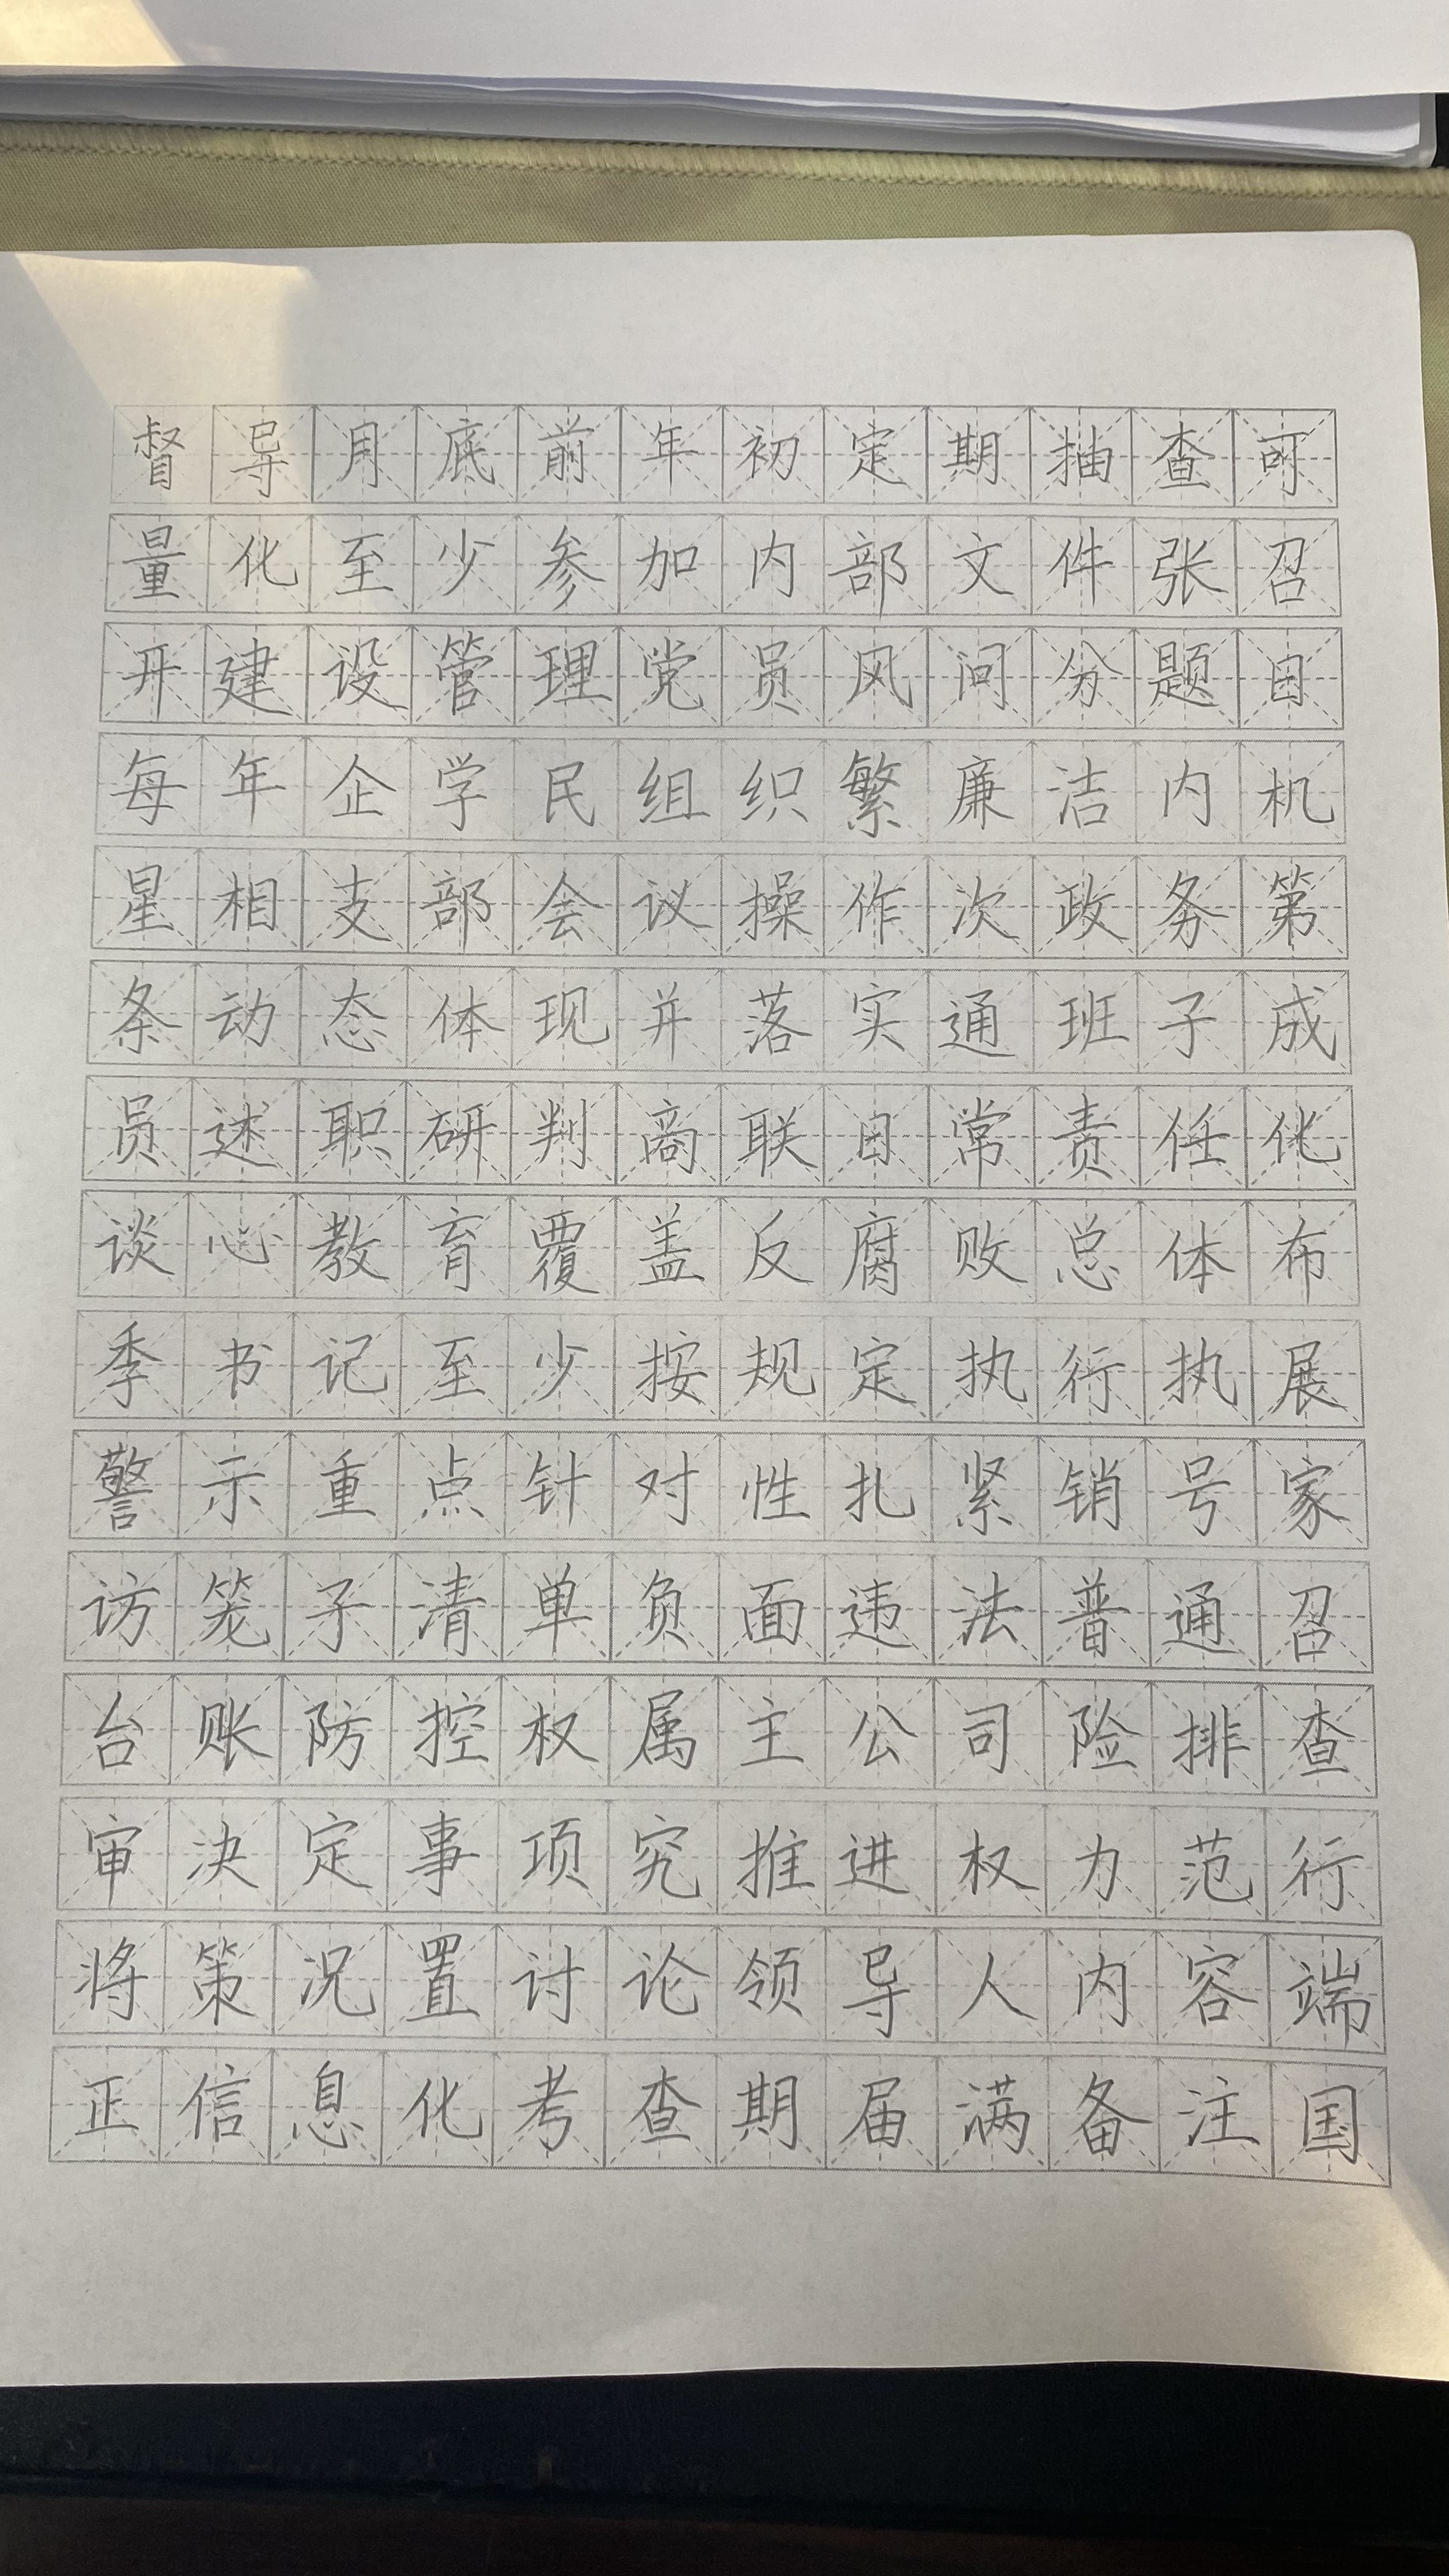 督导月底前年初定期抽查可
量化至少参加内部文件张召
开建设管理党员风问分题目
每年企学民组织繁廉洁内机
星相支部会议操作次政务第
条动态体现并落实通班子成
员述职研判商联日常责任化
谈心教育覆盖反腐败总体布
季书记至少按规定执行执展
警示重点针对性扎紧销号家
访笼子清单负面违法普通召
台账防控权属主公司险排查
审决定事项究推进权力范行
将策况置讨论领导人内容端
正信息化考查期届满备注国